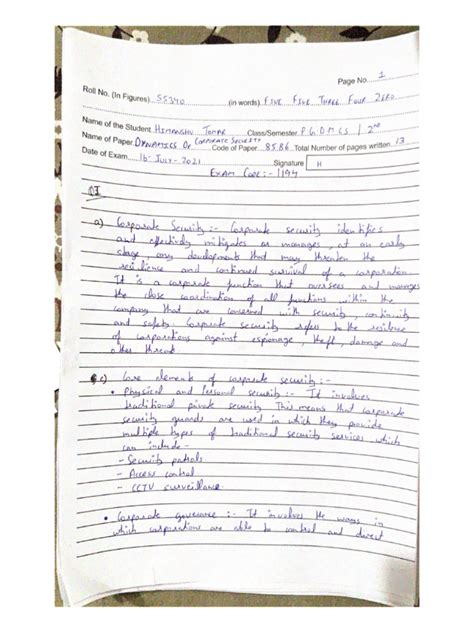 Page No. 1
Roll No. (In Figures) 55340 (in words) Five Five Three Four Zero
Name of the Student Himanshu Tomar Class/Semester P.G.D.M.C.S | 2nd
Name of Paper Dynamics Of Corporate Security Code of Paper 8586 Total Number of pages written 13
Date of Exam 16-July-2021 Signature H
Exam Code:- 1194
Q1
a) Corporate Security:- Corporate security identifies
and effectively mitigates or manages, at an early
stage, any developments that may threaten the
resilience and continued survival of a corporation
It is a corporate function that oversees and manages
the close coordination of all functions within the
company that are concerned with security, continuity
and safety. Corporate security refers to the resilience
of corporations against espionage, theft, damage and
other threat.
c) Core elements of corporate security:-
• Physical and Personal security:- It involves
traditional private security This means that corporate
security guards are used in which they provide
multiple types of traditional security services which
can include-
- Security patrols
- Access control
- CCTV surveillance
• Corporate governance:- It involves the ways in
which corporations are able to control and direct